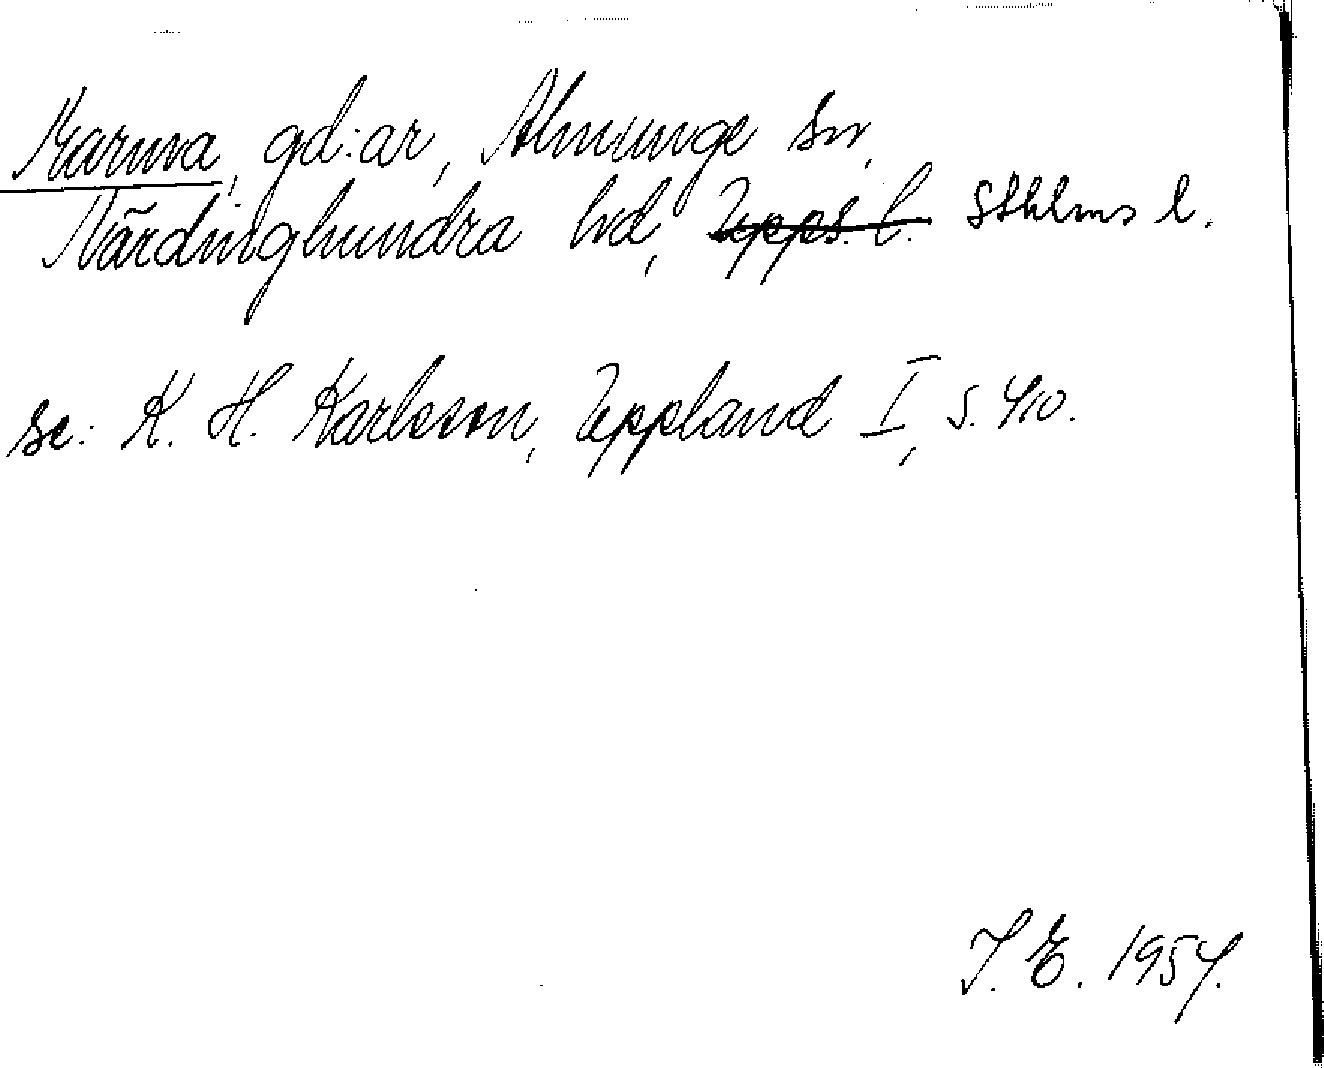 Marma, gd:ar, Almunge sn,
Närdinghundra hd, Upps. l. Sthlms l.
se: K. H. Karlsson, Uppland I, s. 410.
J. E. 1957.